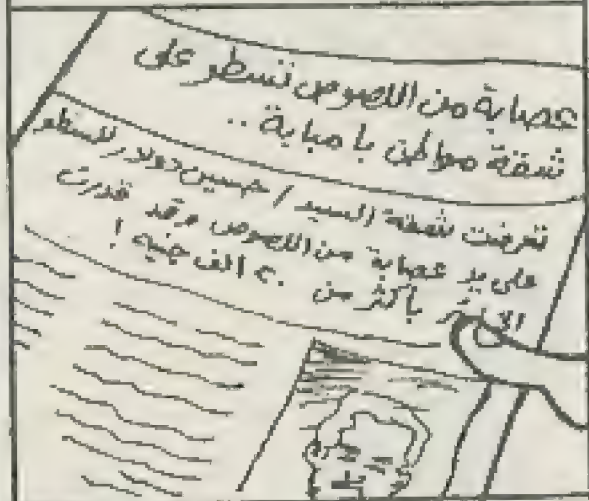 عصابة من اللصوص تسطو على
شقة مواطن بامبابة ..
تعرضت شقة السيد / حسين دولار للسطو
على يد عصابة من اللصوص وقد قدرت
بأكثر من ٢٠ ألف جنيه !